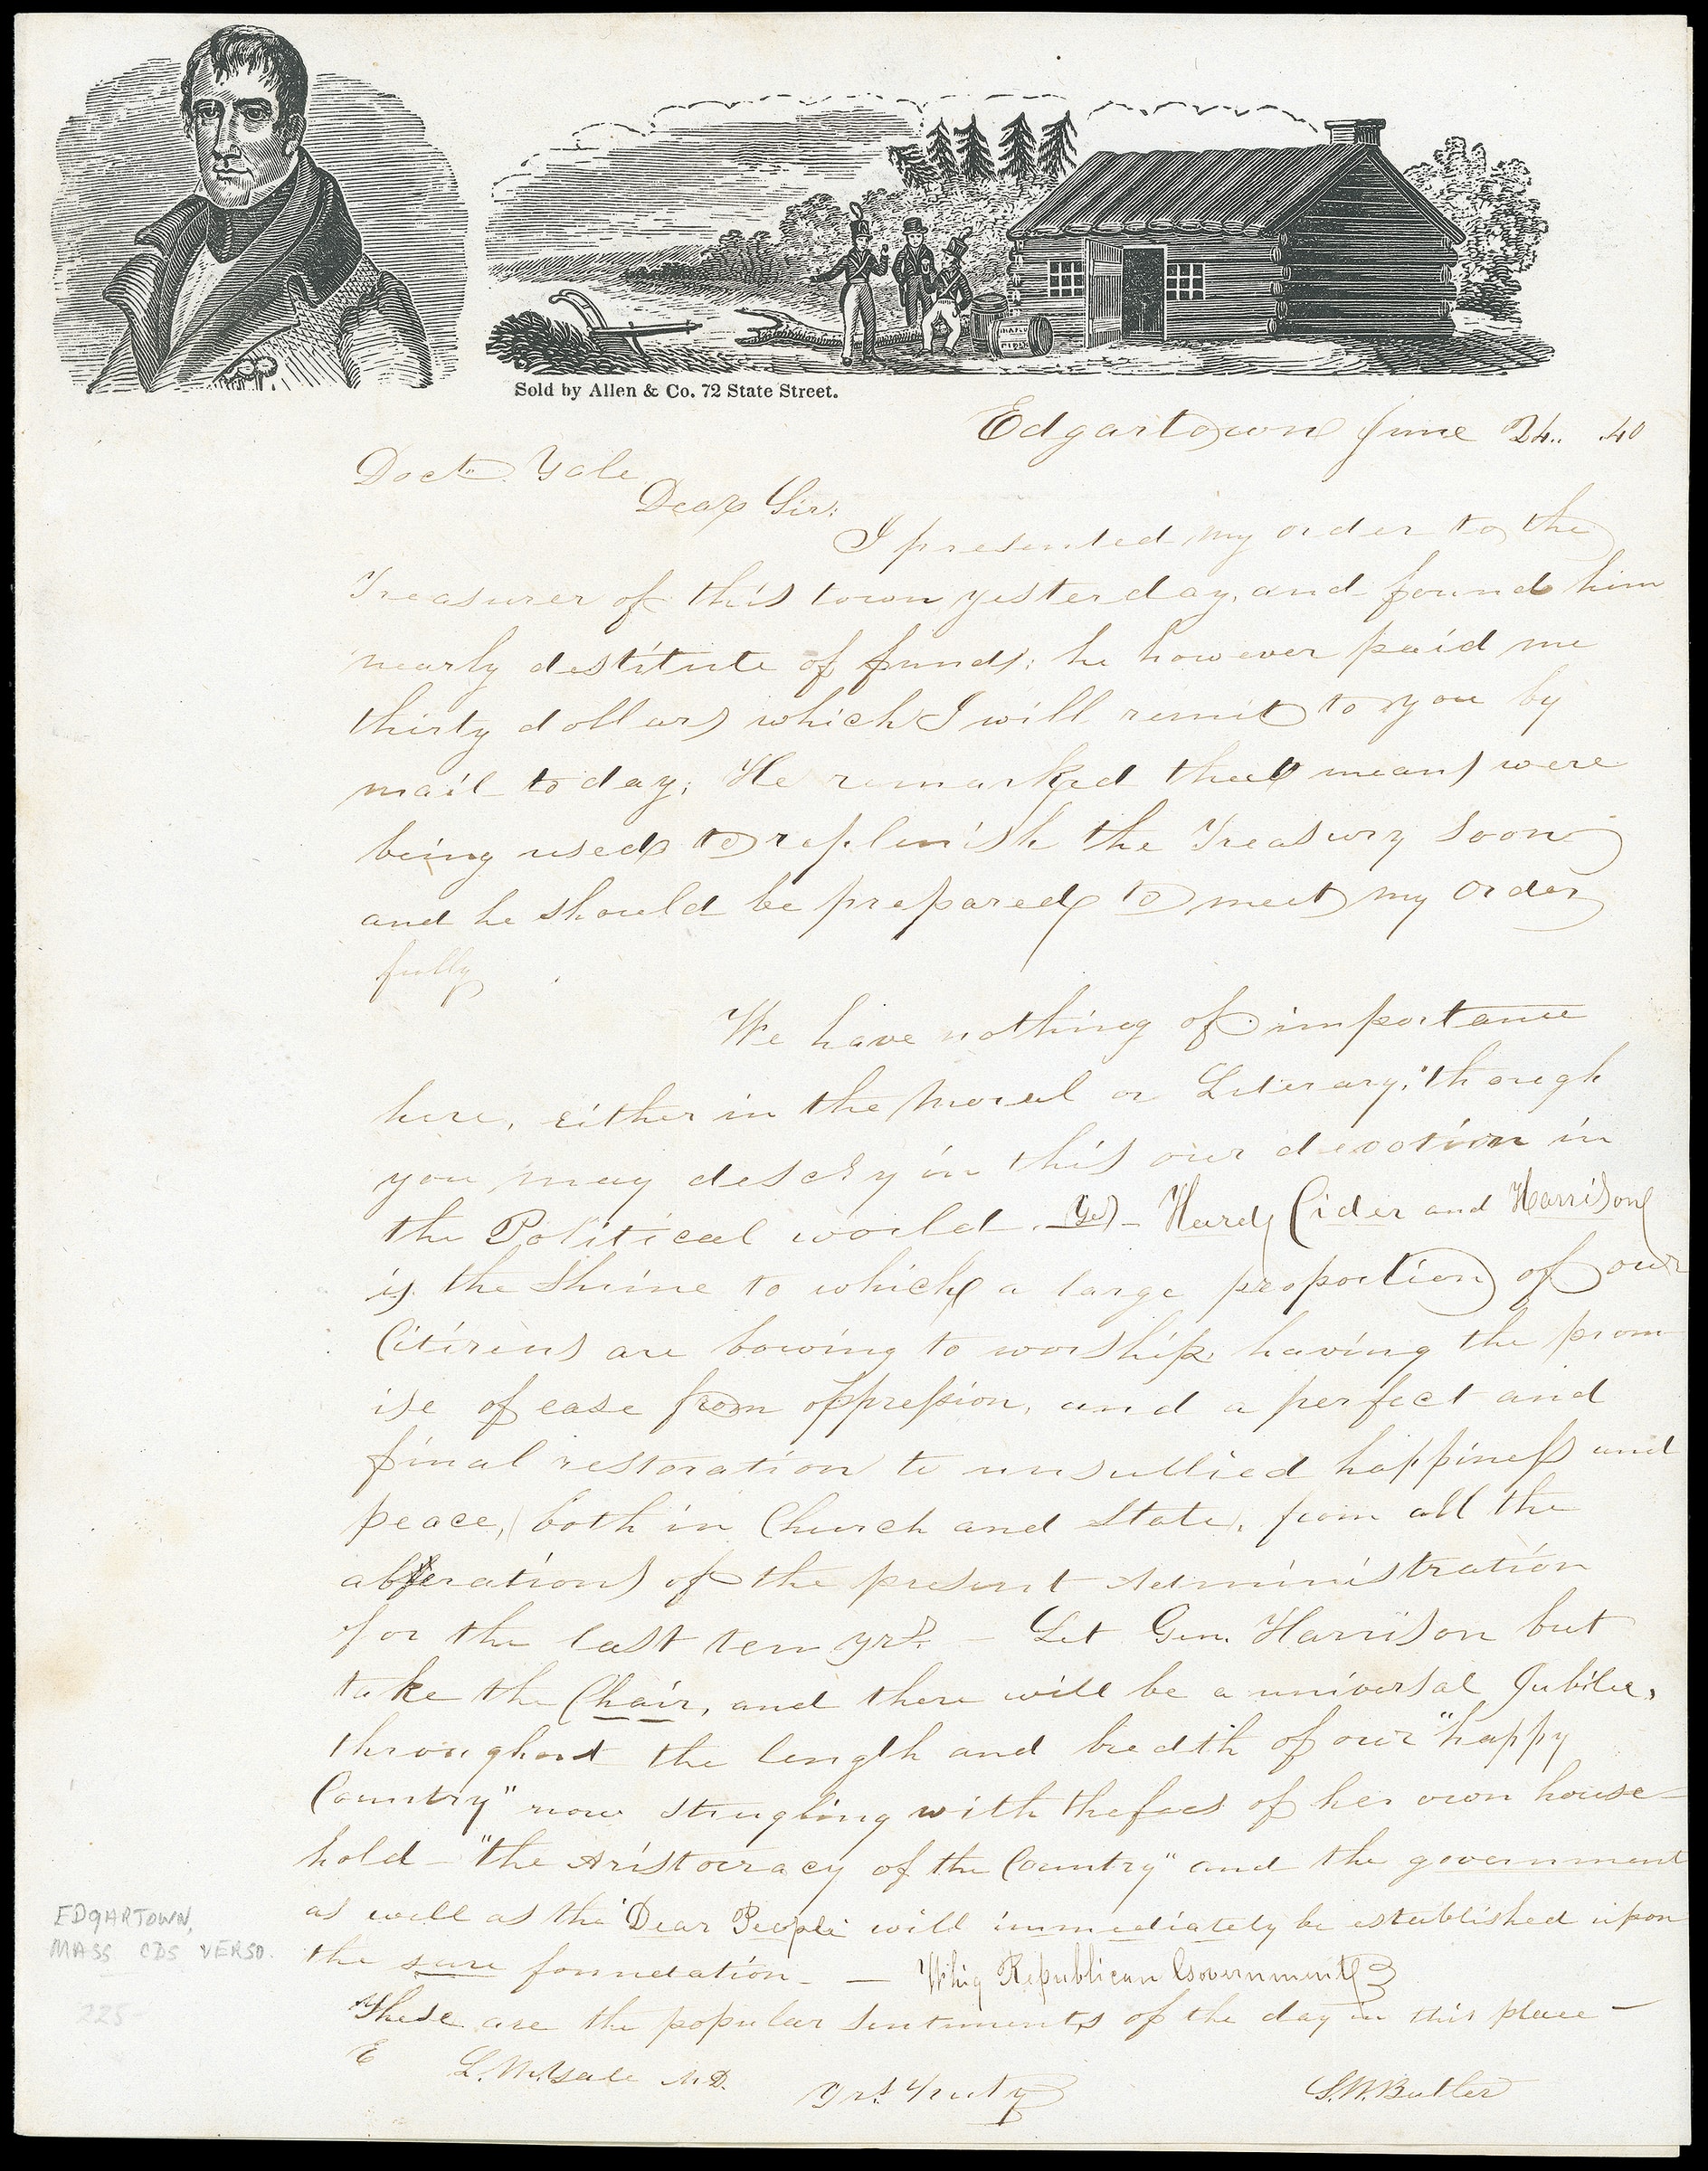 HARD
CIDER
Sold by Allen & Co. 72 State Street.
Edgartown June 24.. .40
Doct. Yale
Dear Sir:
I presented my order to the
Treasurer of this town yesterday, and found him
nearly destitute of funds; he however paid me
thirty dollars which I will remit to you by
mail to day; He remarked that means were
being used to replenish the Treasury soon
and he should be prepared to meet my order
fully
We have nothing of importance
here, either in the Moral or Literary, though
you may descry in this our devotion in
the Political world. Yes - Hard Cider and Harrison
is the Shrine to which a large proportion of our
Citizens are bowing to worship, having the prom
ise of ease from oppression, and a perfect and
final restoration to unsullied happiness and
peace, both in Church and State, from all the
of the present Administration
for the last ten yrs. - Let Gen. Harrison but
take the Chair, and there will be a universal Jubilee,
throughout the length and bredth of our "happy
Country" now strugling with the foes of her own house-
hold - "the Aristocracy of the Country" and the government
as well as the "Dear People" will immediately be established upon
the sure foundation - — Whig Republican Government
These are the popular sentiments of the day in this place -
L. M. Yale M.D. Yrs. Truly S.W. Butler
EDGARTOWN,
MASS CDS VERSO.
225-